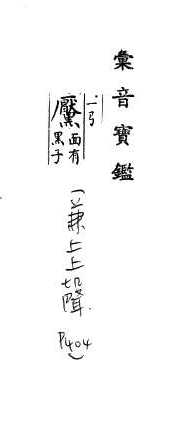 彙音寶鑑
黶 面有黑子
(一兼上上聲
P404)